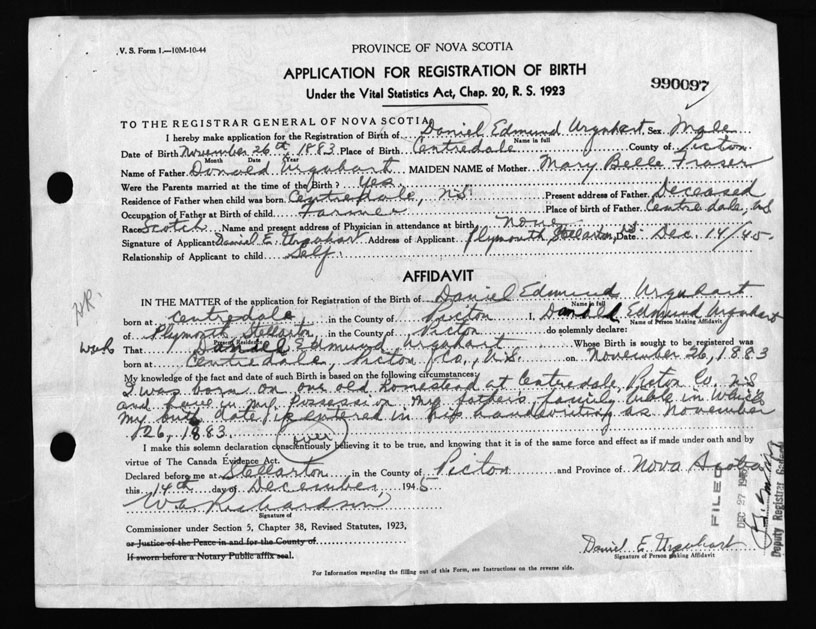 V. S. Form 1.—10M-10-44
PROVINCE OF NOVA SCOTIA
APPLICATION FOR REGISTRATION OF BIRTH
Under the Vital Statistics Act, Chap. 20, R. S. 1923
990097
TO THE REGISTRAR GENERAL OF NOVA SCOTIA
I hereby make application for the Registration of Birth of Daniel Edmund Urquhart Sex Male
Name in full
Date of Birth November 26th, 1883 Place of Birth Centredale County of Picton
Month Date Year
Name of Father Donald Urquhart MAIDEN NAME of Mother Mary Belle Fraser
Were the Parents married at the time of the Birth? Yes
Residence of Father when child was born Centredale, N.S. Present address of Father Deceased
Occupation of Father at Birth of child Farmer Place of birth of Father Centredale, N.S
Race Scotch Name and present address of Physician in attendance at birth None
Signature of Applicant Daniel E. Urquhart Address of Applicant Plymouth, Stellarton, N.S. Date Dec. 14/45.
Relationship of Applicant to child Self.
AFFIDAVIT
H.R.
IN THE MATTER of the application for Registration of the Birth of Daniel Edmund Urquhart
Name in full
born at Centredale, in the County of Picton I, Donald Edmund Urquhart
Name of Person Making Affidavit
of Plymouth, Stellarton in the County of Picton do solemnly declare:
Present Residence
That Daniel Edmund Urquhart Whose Birth is sought to be registered was
born at Centredale, Picton Co., N.S. on November 26, 1883
My knowledge of the fact and date of such Birth is based on the following circumstances:
I was born on our old Homestead at Centredale, Picton Co. N.S
and have in my possession my father's family bible in which
my birth date is entered in his handwriting as November
26, 1883. over
I make this solemn declaration conscientiously believing it to be true, and knowing that it is of the same force and effect as if made under oath and by
virtue of The Canada Evidence Act.
Declared before me at Stellarton in the County of Picton and Province of Nova Scotia
this 14th day of December 1945
Signature of
Commissioner under Section 5, Chapter 38, Revised Statutes, 1923,
or Justice of the Peace in and for the County of
If sworn before a Notary Public affix seal.
FILED
DEC 27 1945
Deputy Registrar General
Daniel E. Urquhart
Signature of Person making Affidavit
For Information regarding the filling out of this Form, see Instructions on the reverse side.